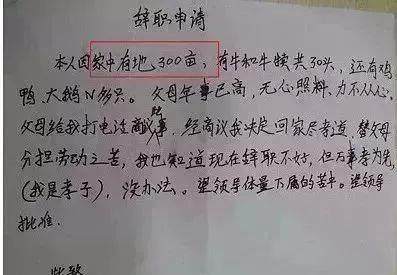 辞职申请
本人因家中有地300亩,有牛和牛犊共30头,还有鸡
鸭、大鹅N多只。父母年事已高,无心照料、力不从心。
父母给我打电话商议事,经商议我决定回家尽孝道,替父母
分担劳动之苦,我也知道现在辞职不好,但万事孝为先,
(我是孝子),没办法。望领导体量下属的苦中。望领导
批准.
此致